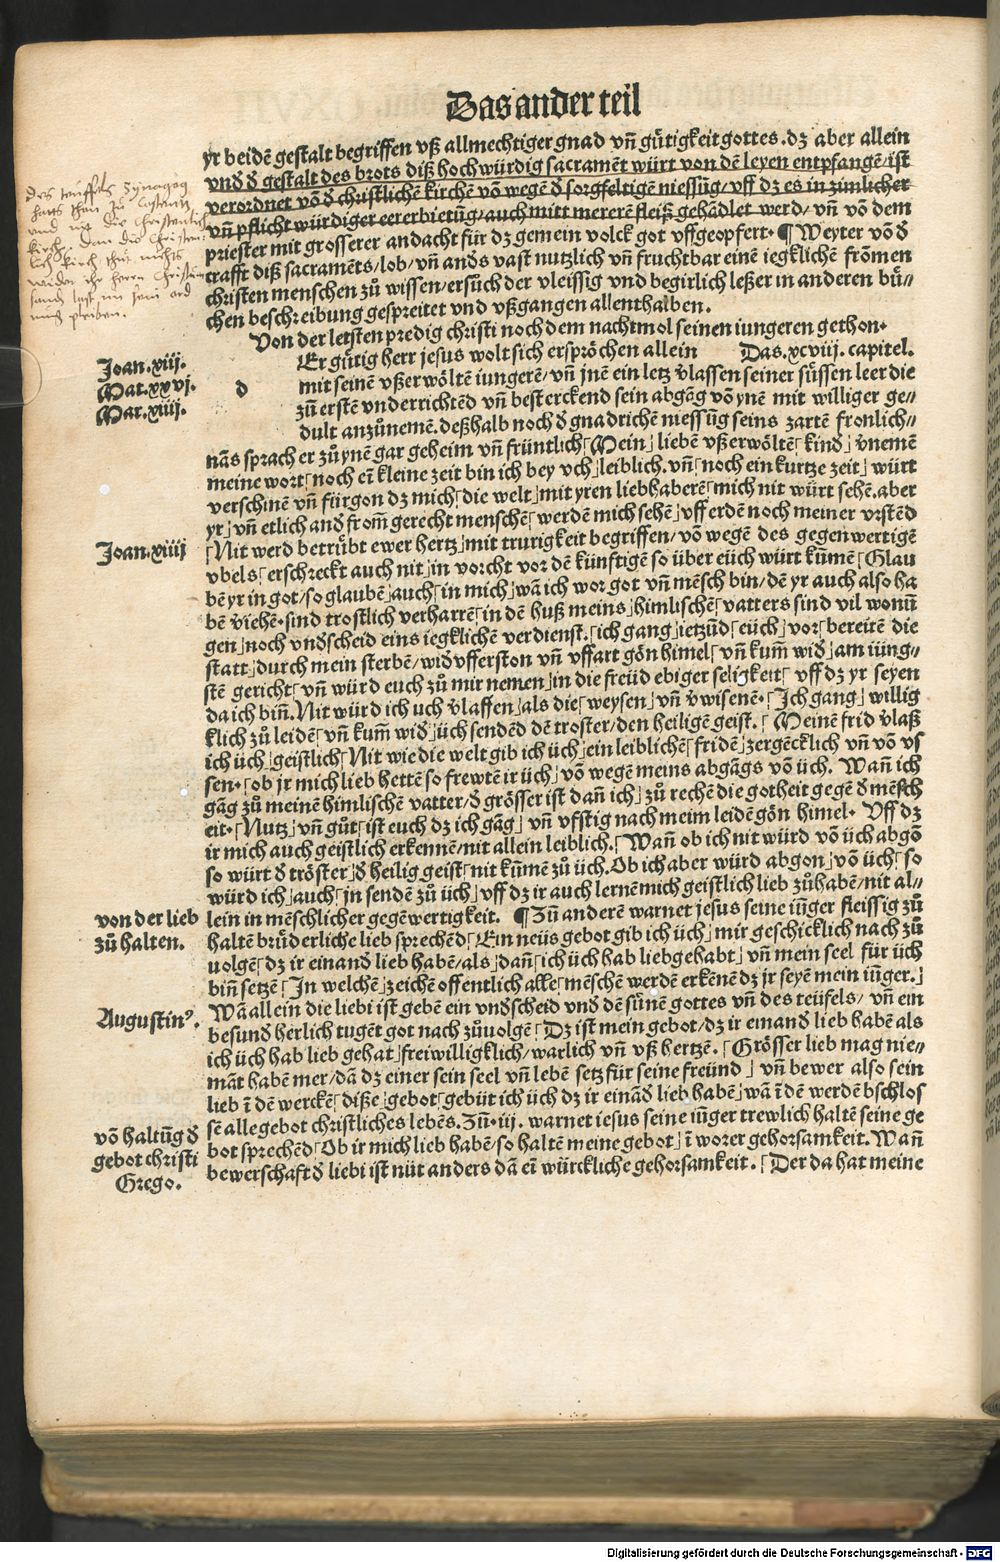 Das ander teil
yr beidē gestalt begriffen vß allmechtiger gnad vn̄ gütigkeit gottes. dz aber allein
vnd d gestalt des brots diß hochwürdig sacramēt würt von dē leyen entpfangē/ist
verordnet vō d christlichē kirchē vō wegē d sorgfeltigē niessūg/vff dz es in zimlicher
vn̄ pflicht würdiger eererbietūg/auch mitt mererē fleiß gehādlet werd/vn̄ vō dem
priester mit grosserer andacht für dz gemein volck got vffgeopfert. ¶ Weyter vō d
crafft diß sacramēts/lob/vn̄ ands vast nutzlich vn̄ fruchtbar einē iegklichē frōmen
christen menschen zů wissen/ersůch der vleissig vnd begirlich leßer in anderen bü//
chen beschreibung gespreitet vnd vßgangen allenthalben.
Von der letsten predig christi noch dem nachtmol seinen iungeren gethon.
Er gütig herr jesus wolt sich ersprōchen allein Das. xcviij. capitel.
d
mit seinē vßerwōltē iungerē/vn̄ jnē ein letz vlassen seiner süssen leer die
zū erstē vnderrichtēd vn̄ besterckend sein abgēg vō ynē mit williger ge//
dult anzůnemē. deßhalb noch d gnadrichē niessūg seins zartē fronlich//
nās sprach er zů ynē gar geheim vn̄ früntlich⌈Mein⌋liebē vßerwōltē⌈kind⌋vnemē
meine wort⌈noch eī kleine zeit bin ich bey vch⌋leiblich. vn̄⌈noch ein kurtze zeit⌋würt
verschinē vn̄ fürgon dz mich⌈die welt⌋mit yren liebhaberē⌈mich nit würt sehē. aber
yr⌋vn̄ etlich and from̄ gerecht menschē⌈werdē mich sehē⌋vff erdē noch meiner vrstēd
⌈Nit werd betrübt ewer hertz⌋mit trurigkeit begriffen/vō wegē des gegenwertigē
vbels⌈erschreckt auch nit⌋in vorcht vor dē künftigē so über eüch würt kūmē⌈Glau
bē yr in got/so glaubē⌋auch⌈in mich⌋wā ich wor got vn̄ mēsch bin/dē yr auch also ha
bē viehē. sind trostlich verharrē⌈in dē huß meins⌋himlischē⌈vatters sind vil wonū
gen⌋noch vndscheid eins iegklichē verdienst.⌈ich gang⌋ietzūd⌈eüch⌋vor⌈bereirē die
statt⌋durch mein sterbē/widvfferston vn̄ vffart gōn himel⌈vn̄ kum̄ wid⌋am iüng//
stē gericht⌈vn̄ würd euch zů mir nemen⌋in die freüd ebiger seligkeit⌈vff dz yr seyen
da ich bin̄. Nit würd ich uch vlassen⌋als die⌈weysen⌋vn̄ vwisenē.⌈Ich gang⌋willig
klich zů leidē⌈vn̄ kum̄ wid⌋üch sendēd dē troster/den heiligē geist.⌈Meinē frid vlaß
ich üch⌋geistlich⌈Nit wie die welt gib ich üch⌋ein leiblichē⌈fridē⌋zergēcklich vn̄ vō vs
sen.⌈ob jr mich lieb hettē so frewtē ir üch⌋vō wegē meins abgāgs vō üch. Wan̄ ich
gāg zů meinē himlischē vatter/d grōsser ist dan̄ ich⌋zů rechē die gotheit gegē d mēsch
eit.⌈Nutz⌋vn̄ gůt⌈ist euch dz ich gāg⌋vn̄ vfstig nach meim leidē gōn himel. Vff dz
ir mich auch geistlich erkennē/nit allein leiblich.⌈Wan̄ ob ich nit würd vō üch abgō
so würt d trōster⌋d heilig geist⌈nit kūmē zů üch. Ob ich aber würd abgon⌋vō üch⌈so
würd ich⌋auch⌈jn sendē zů üch⌋vff dz ir auch lernē mich geistlich lieb zůhabē/nit al//
lein in mēschlicher gegēwertigkeit. ¶ Zū anderē warnet jesus seine iūger fleissig zů
haltē brüderliche lieb sprechēd⌈Ein neüs gebot gib ich üch⌋mir geschicklich nach zů
uolgē⌈dz ir einand lieb habē/als⌋dan̄⌈ich üch hab liebgehabt⌋vn̄ mein seel für üch
bin̄ setzē⌈In welchē⌋zeichē offentlich alle⌈mēschē werdē erkēnē dz jr seyē mein iūger.⌋
Wā allein die liebi ist gebē ein vndscheid vnd dē sūnē gottes vn̄ des teüfels/vn̄ ein
besund herlich tugēt got nach zůuolgē⌈Dz ist mein gebot/dz ir einand lieb habē als
ich üch hab lieb gehat⌋freiwilligklich/warlich vn̄ vß hertzē.⌈Grōsser lieb mag nie//
māt habē mer/dā dz einer sein seel vn̄ lebē setz für seine freünd⌋vn̄ bewer also sein
lieb ī dē werckē⌈diße⌋gebot⌈gebüt ich üch dz ir einād lieb habē⌋wā ī dē werdē bschlos
sē alle gebot christliches lebēs. Zū. iij. warnet iesus seine iūger trewlich haltē seine ge
bot sprechēd⌈Ob ir mich lieb habē/so haltē meine gebot⌋ī worer gehorsamkeit. Wan̄
bewerschaft d liebi ist nüt anders dā eī würckliche gehorsamkeit.⌈Der da hat meine
des teuffels synagog
hats than zu Costentz
und nit die christenlich
kirche, dan die christen
lich kirch thut nichts
wider ihr herrn Christum
Joan. xiij.
Mat. xxvj.
Mar. xiiij.
Joan. xiiij
von der lieb
zů halten.
Augustin⁹.
vō haltūg d
gebot christi
Grego.
Digitalisierung gefördert durch die Deutsche Forschungsgemeinschaft - DFG